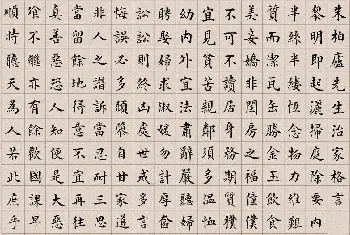 朱柏廬先生治家格言
黎明即起灑掃庭除要內
半絲半縷恆念物力維艱
質而潔瓦缶勝金玉飲食
美妾嬌非閨房之福僮僕
不可不讀居身務期質樸
宜見貧苦親鄰須多溫恤
幼內外宜法肅辭嚴聽婦
聘娶婦求淑女勿計厚奩
訟訟則終凶處世戒多言
悔誤必多頹惰自甘家道
非人之譖訴當忍耐三思
當留餘地得意不宜再往
真善惡恐人知便是大惡
飧不繼亦有餘歡國課早
順時聽天為人若此庶乎